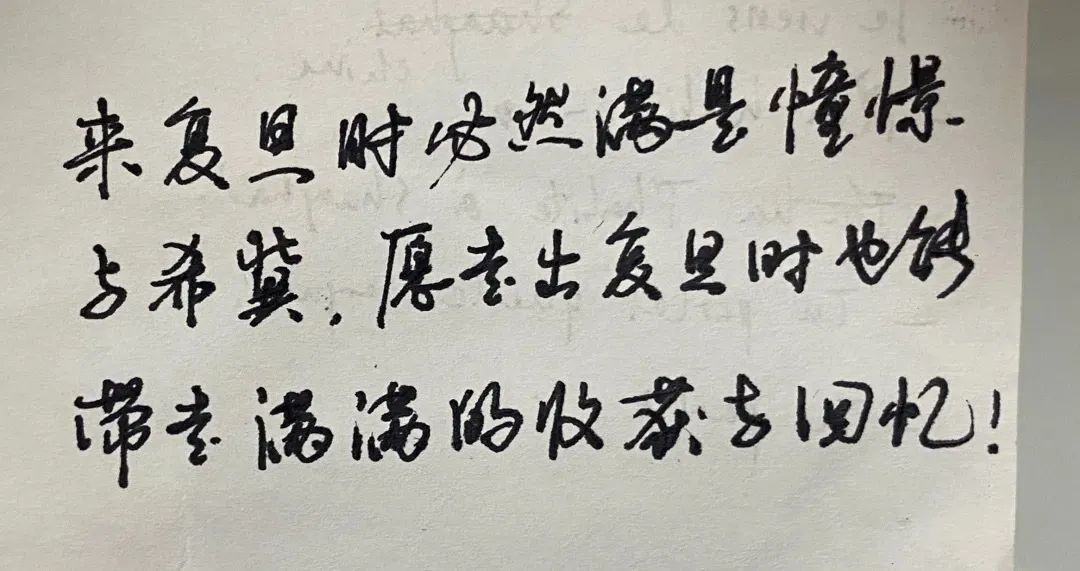 来复旦时必然满是憧憬
与希冀，愿走出复旦时也能
带走满满的收获与回忆！